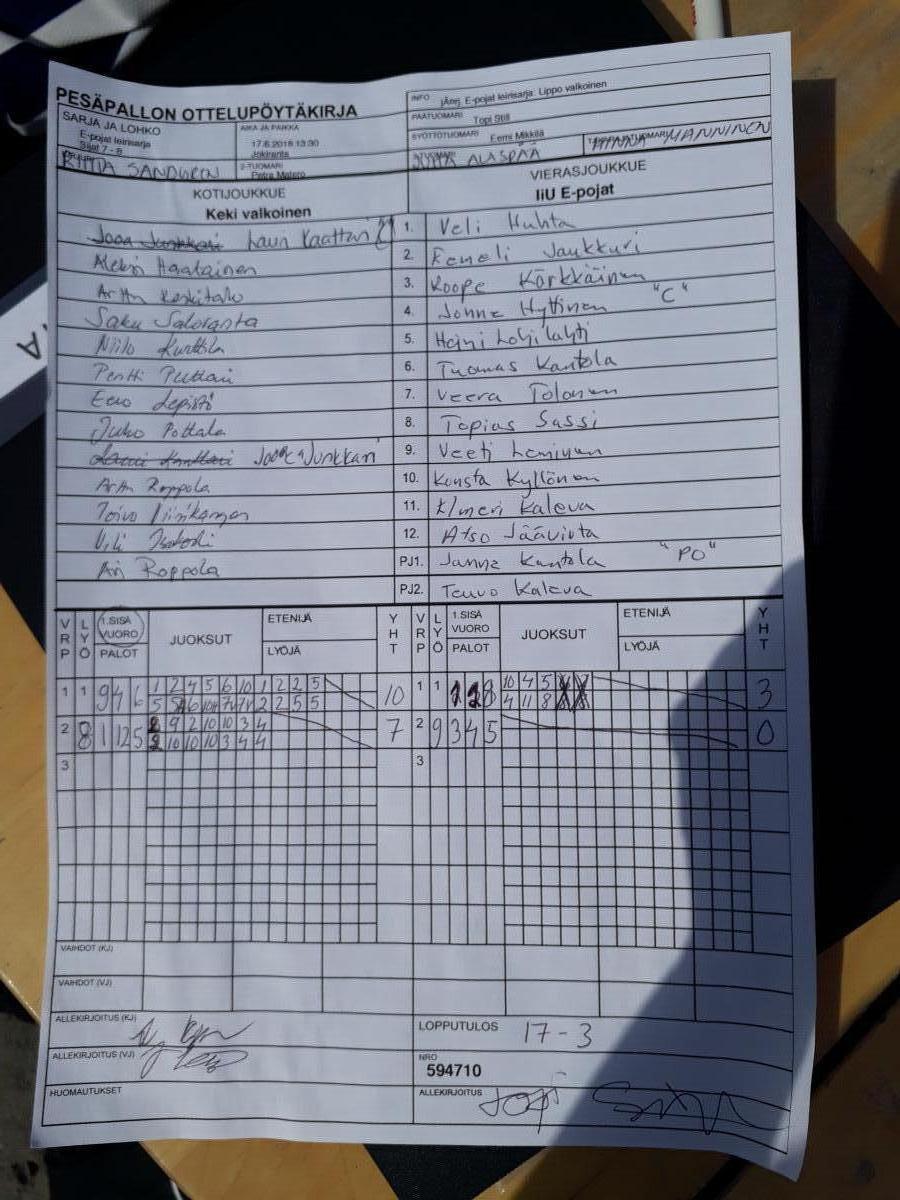 PESÄPALLON OTTELUPÖYTÄKIRJA
INFO jÄnj. E-pojat leirisarja. Lippo valkoinen
SARJA JA LOHKO
E-pojat leirisarja
Sijat 7 - 8
AIKA JA PAIKKA
17.6.2018 13:30
Jokiranta
PÄÄTUOMARI Topi Still
SYÖTTÖTUOMARI Eemi Mikkilä
MANNINEN
RIITTA SANDGREN
2-TUOMARI
Petra Matero
ALASPÄÄ
KOTIJOUKKUE
VIERASJOUKKUE
Keki valkoinen
IiU E-pojat
Lauri Kaattari 1. Veli Huhta
Aleksi Haatainen 2. Eemeli Jaukkuri
Arttu Keskitalo 3. Roope Kärkkäinen
Saku Saloranta 4. Jonne Hyttinen "C"
Niilo Kurttila 5. Heini Lohilahti
Pentti Puttari 6. Tuomas Kantola
Eero Lepistö 7. Veera Tolonen
Juho Pottala 8. Topias Sassi
Joona Junkkari 9. Veeti Leminen
Arttu Roppola 10. Konsta Kyllönen
Toivo 11. Elmeri Kaleva
Vili 12. Atso Jäävirta
Ari Roppola PJ1. Janne Kantola "PO"
PJ2. Teuvo Kaleva
VRP LYÖ 1.SISÄ VUORO PALOT JUOKSUT ETENIJÄ LYÖJÄ YHT VRP LYÖ 1.SISÄ VUORO PALOT JUOKSUT ETENIJÄ LYÖJÄ YHT
1 1 9 4 6 1 2 4 5 6 10 1 2 2 5 10 1 1 8 10 4 5 3
5 2 2 5 5 4 11 8
2 8 1 12 5 9 2 10 10 3 4 7 2 9 3 4 5 0
2 10 10 10 3 4 4
3 3
VAIHDOT (KJ)
VAIHDOT (VJ)
ALLEKIRJOITUS (KJ)
LOPPUTULOS 17 - 3
ALLEKIRJOITUS (VJ)
NRO
594710
HUOMAUTUKSET
ALLEKIRJOITUS Topi